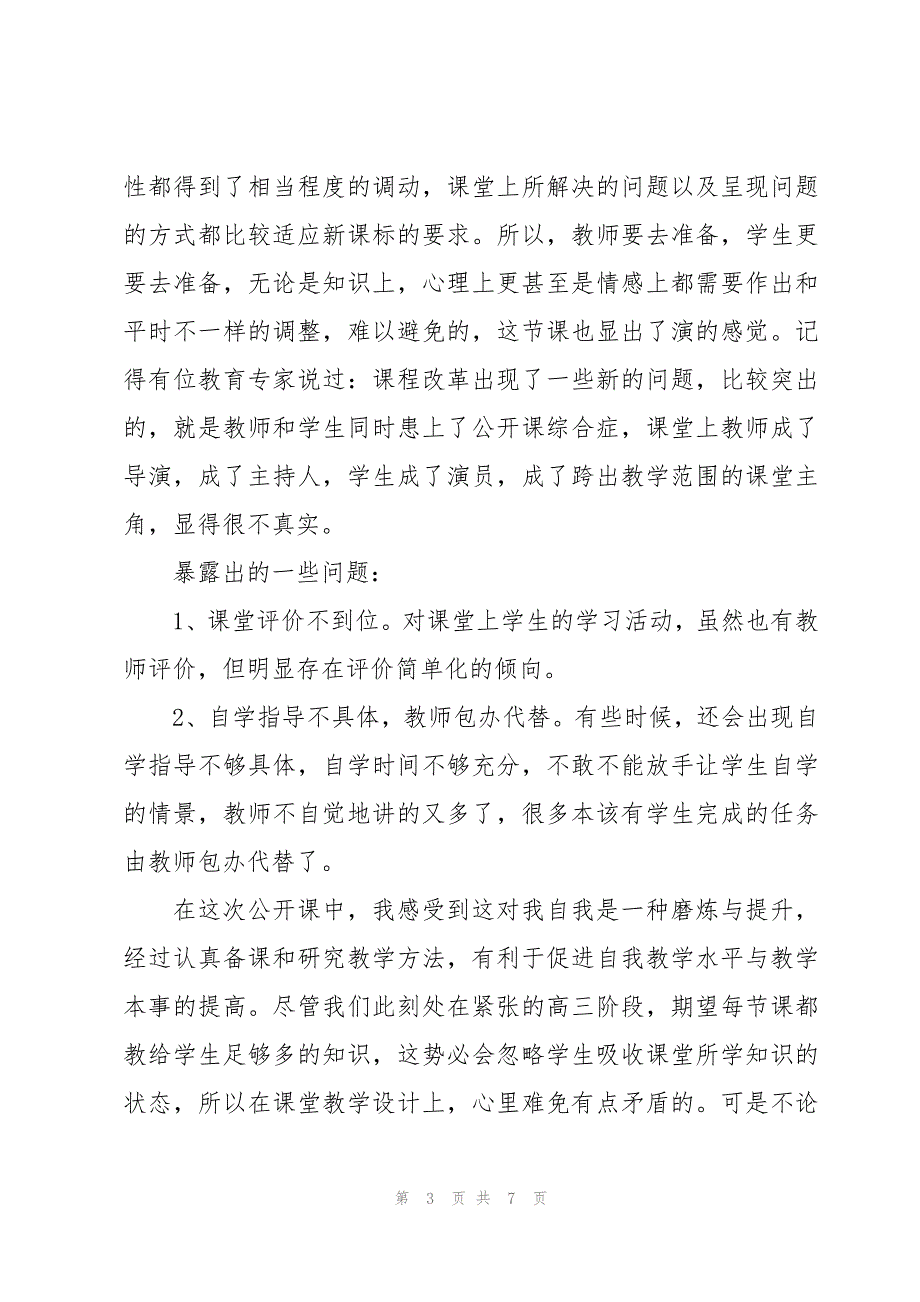 性都得到了相当程度的调动，课堂上所解决的问题以及呈现问题
的方式都比较适应新课标的要求。所以，教师要去准备，学生更
要去准备，无论是知识上，心理上更甚至是情感上都需要作出和
平时不一样的调整，难以避免的，这节课也显出了演的感觉。记
得有位教育专家说过：课程改革出现了一些新的问题，比较突出
的，就是教师和学生同时患上了公开课综合症，课堂上教师成了
导演，成了主持人，学生成了演员，成了跨出教学范围的课堂主
角，显得很不真实。
暴露出的一些问题：
1、课堂评价不到位。对课堂上学生的学习活动，虽然也有教
师评价，但明显存在评价简单化的倾向。
2、自学指导不具体，教师包办代替。有些时候，还会出现自
学指导不够具体，自学时间不够充分，不敢不能放手让学生自学
的情景，教师不自觉地讲的又多了，很多本该有学生完成的任务
由教师包办代替了。
在这次公开课中，我感受到这对我自我是一种磨炼与提升，
经过认真备课和研究教学方法，有利于促进自我教学水平与教学
本事的提高。尽管我们此刻处在紧张的高三阶段，期望每节课都
教给学生足够多的知识，这势必会忽略学生吸收课堂所学知识的
状态，所以在课堂教学设计上，心里难免有点矛盾的。可是不论
第 3 页 共 7 页